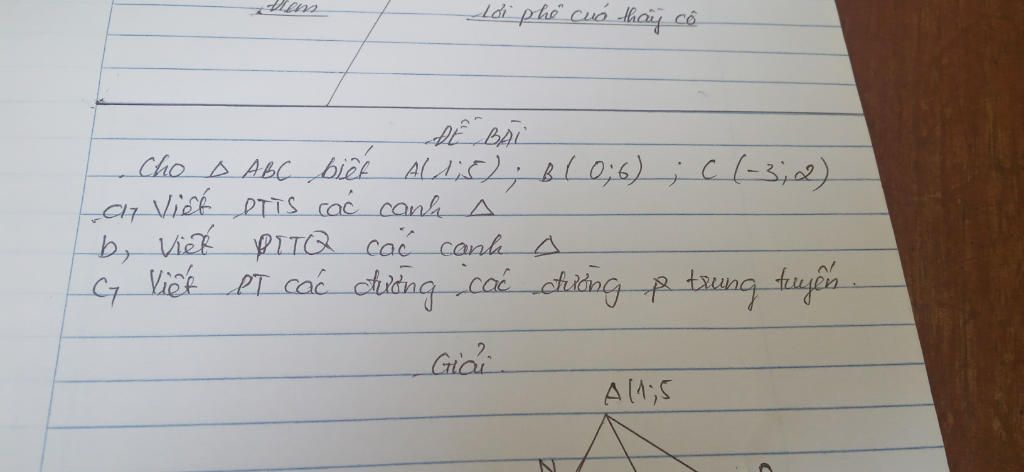 điểm Lời phê cuả thầy cô
ĐỀ BÀI
Cho Δ ABC biết A(1;5) ; B(0;6) ; C(-3;2)
a, Viết PTTS các cạnh Δ
b, Viết PTTQ các cạnh Δ
c, Viết PT các đường các đường trung tuyến.
Giải.
A(1;5
N